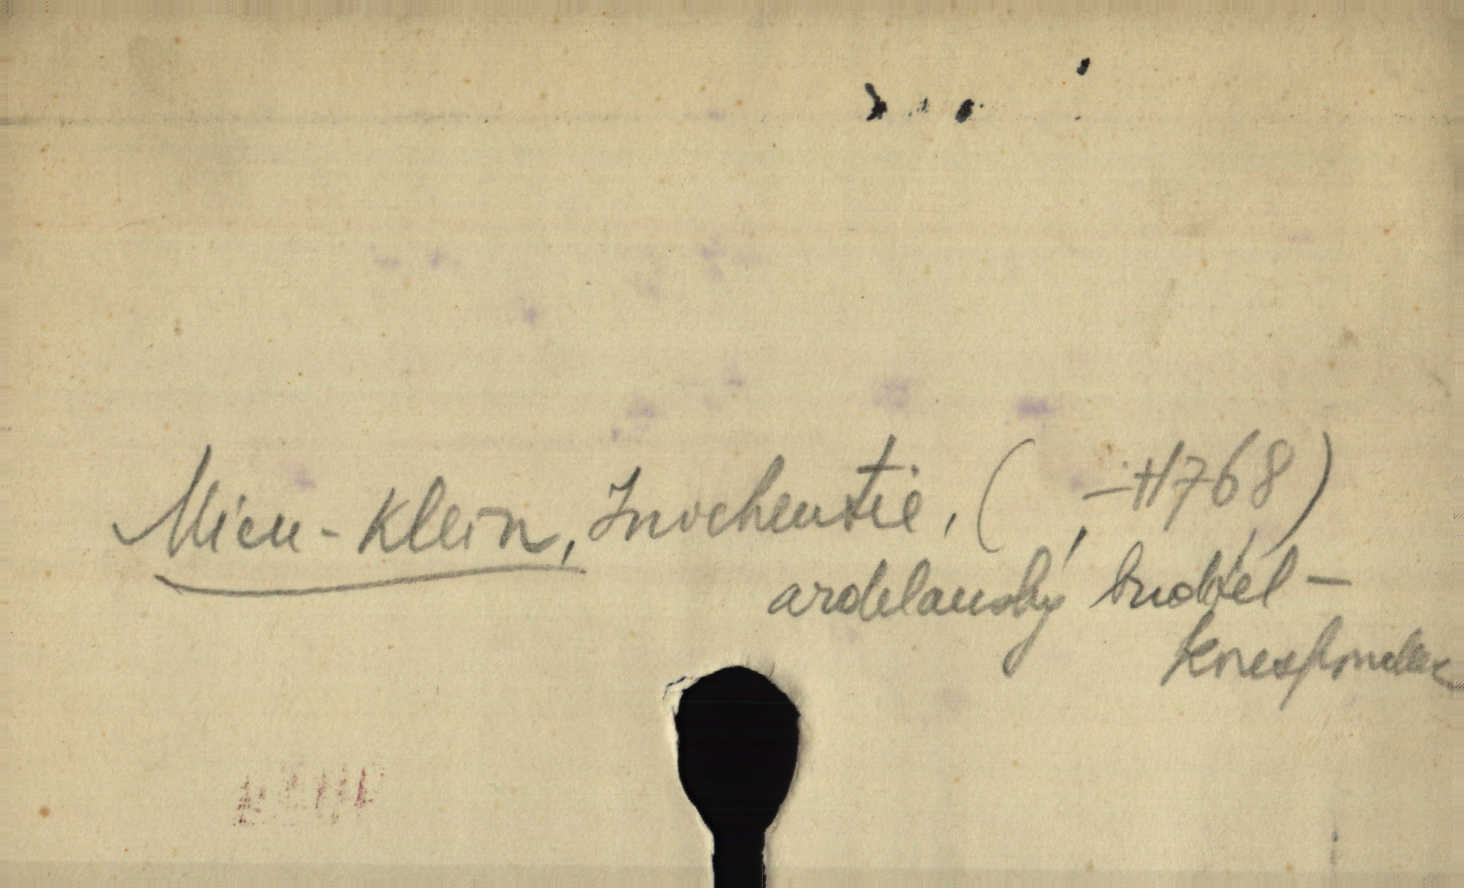 Micu-Klein, Inochentie, ( , -†1768)
ardelanský buditel -
korespondenc